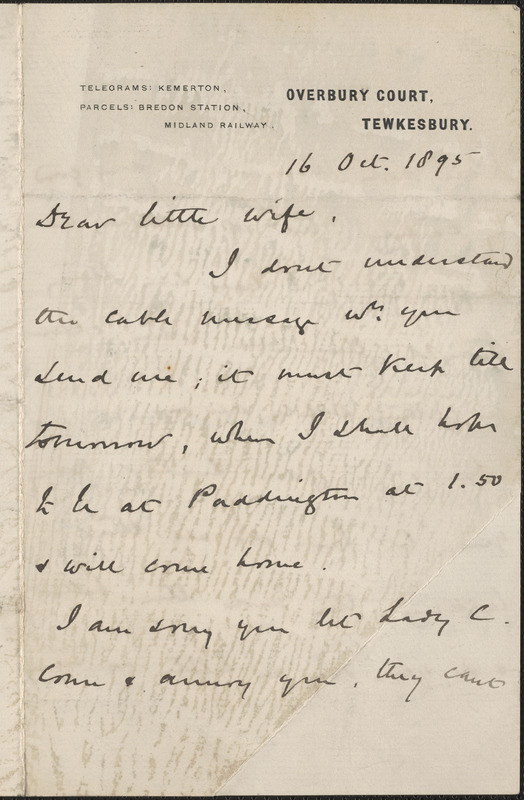 TELEGRAMS: KEMERTON,
PARCELS: BREDON STATION,
MIDLAND RAILWAY.
OVERBURY COURT,
TEWKESBURY.
16 Oct. 1895
Dear little wife,
I dont understand
the cable message wh. you
send me; it must keep till
tomorrow, when I shall hope
to be at Paddington at 1.50
& will come home.
I am sorry you let Lady C.
come & annoy you, they cant